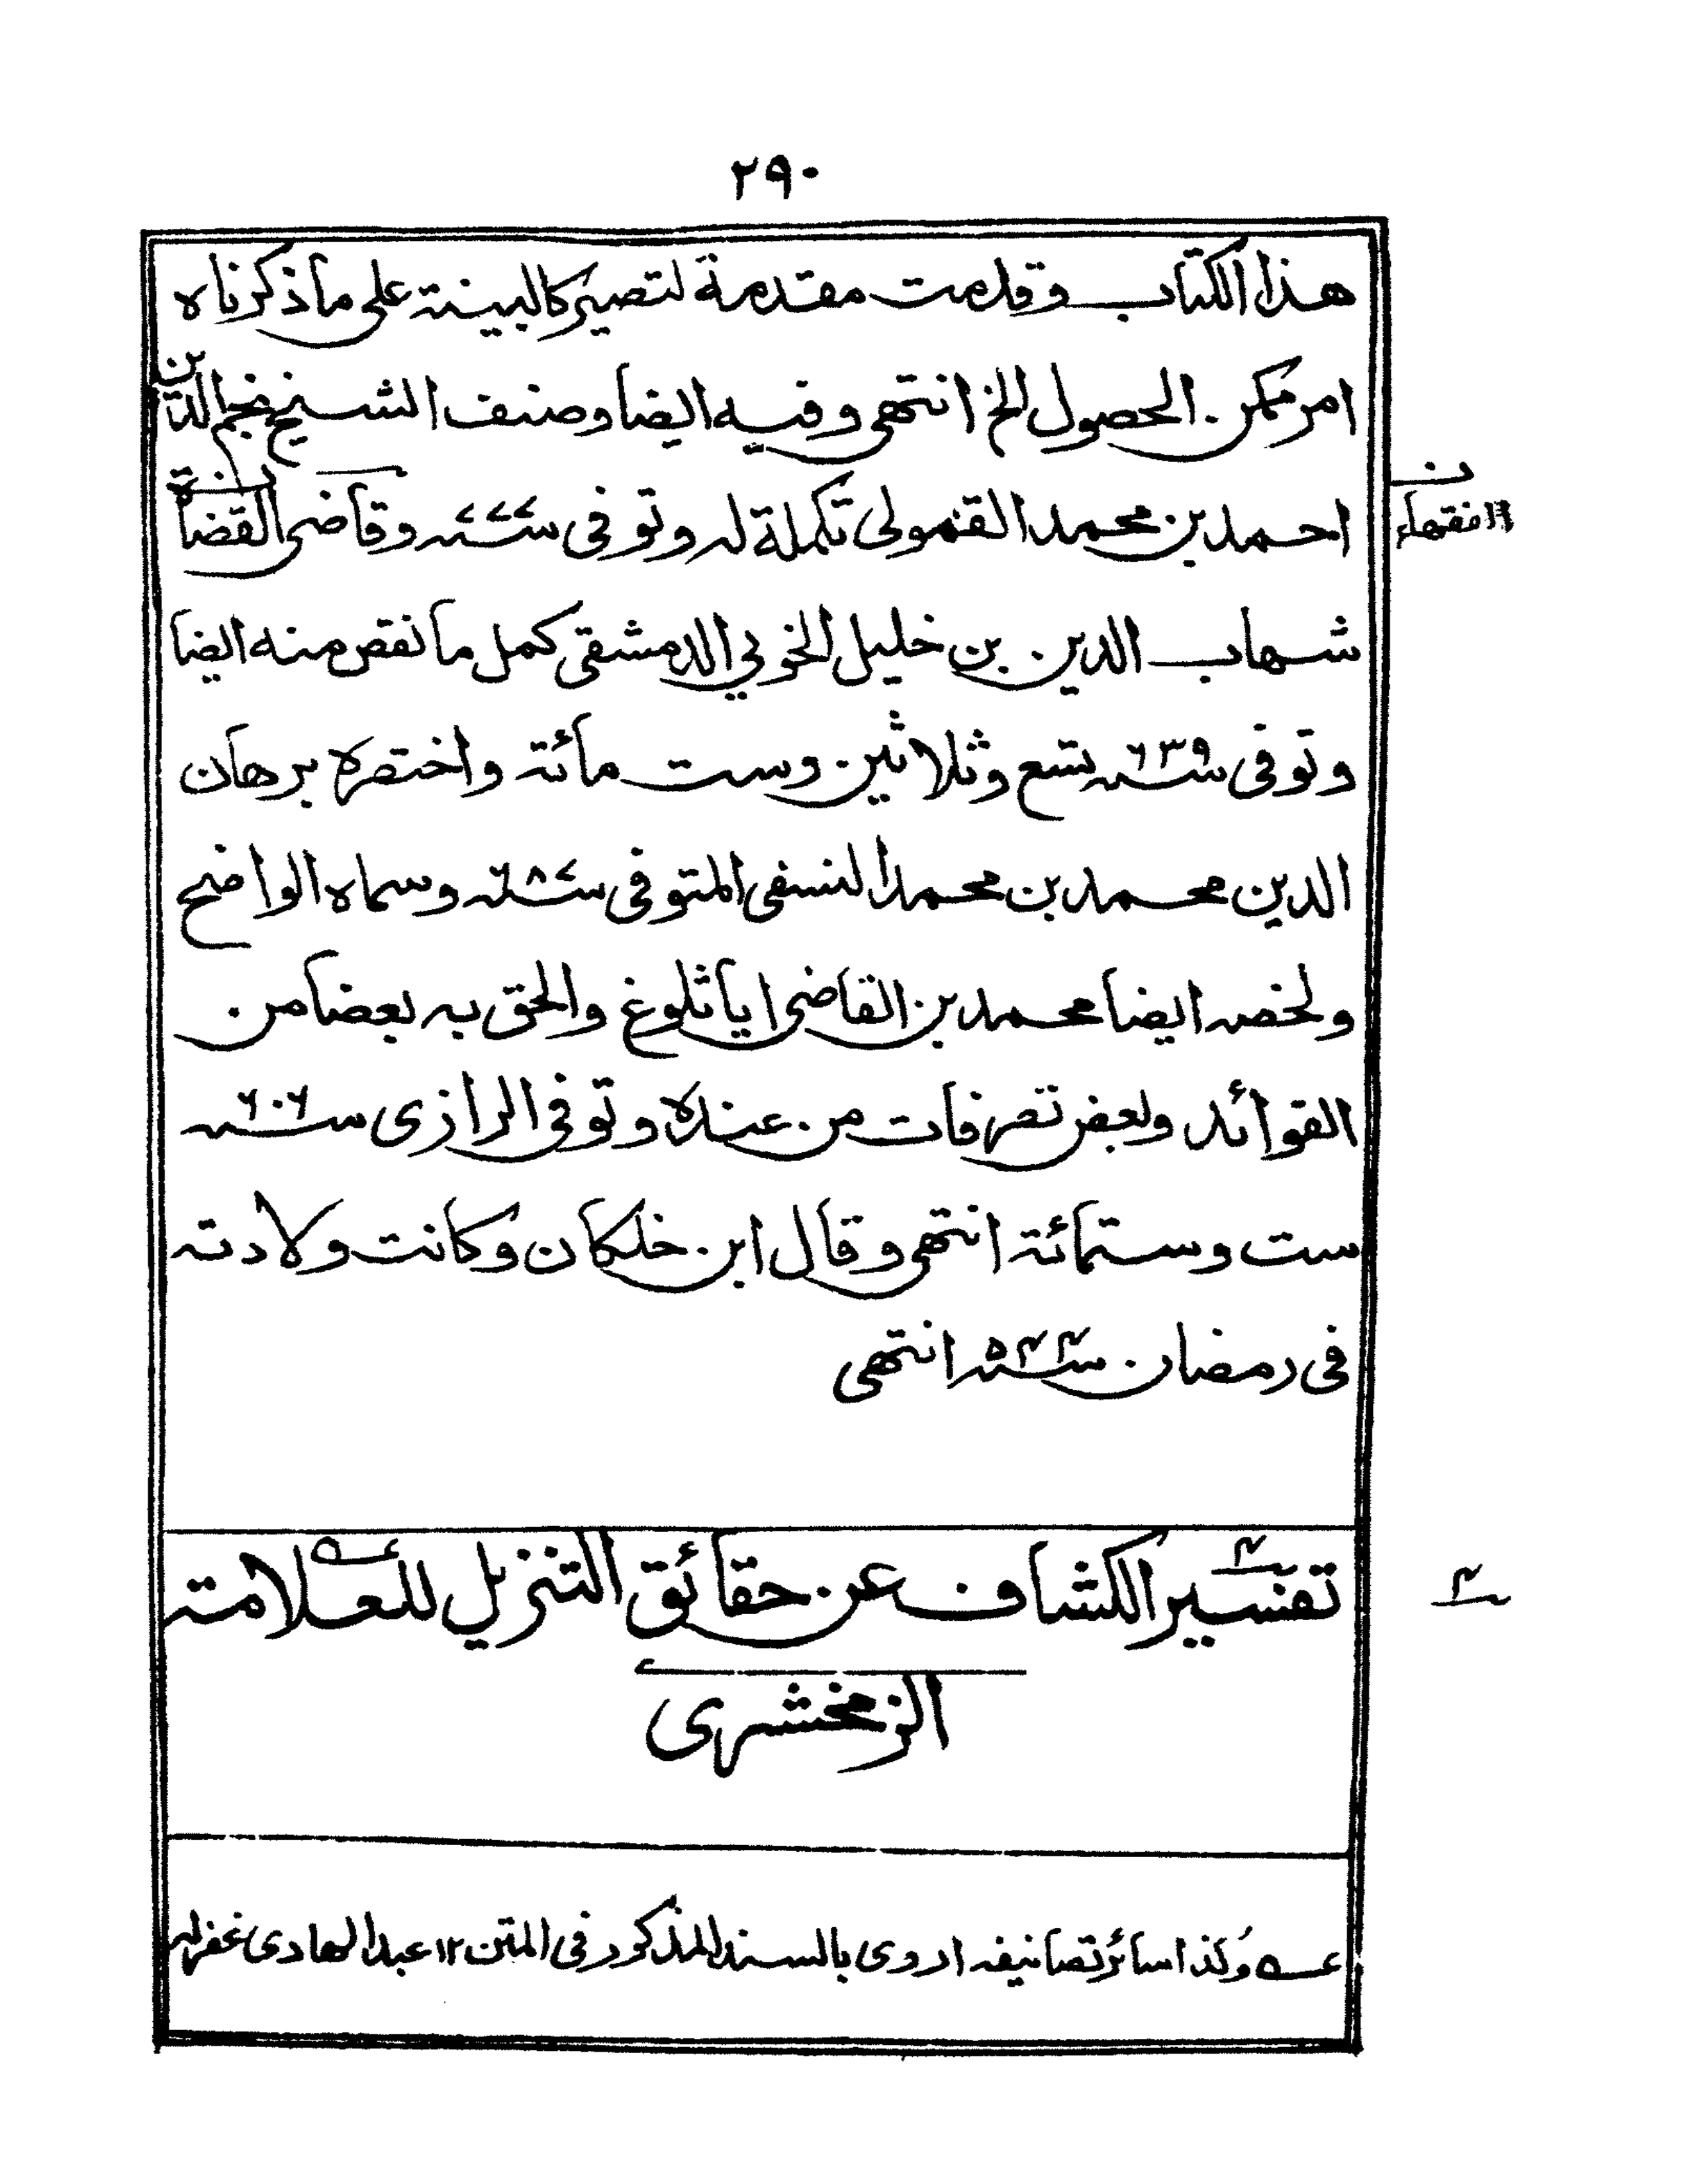 ٢٩٠
هذا الكتاب وقدمت مقدمة لتصير كالبينة على ما ذكرناه
امر ممكن الحصول الخ انتهى وفيه ايضا وصنف الشيخ نجم الدين
احمد بن محمد القمولى تكملة له وتوفى سنة ٧٧٧ وقاضى القضاة
ن
الفقهاء ١٢
شهاب الدين بن خليل الخويي الدمشقى كمل ما نقص منه ايضا
وتوفى سنة ٦٣٩ تسع وثلاثين وست مائة واختصره برهان
الدين محمد بن محمد النسفى المتوفى سنة ٦٨٧ وسماه الواضح
ولخصه ايضا محمد بن القاضى اياثلوغ والحق به بعضا من
القوائد وبعض تصرفات من عنده وتوفى الرازى سنة ٦٠٦
ست وستمائة انتهى وقال ابن خلكان وكانت ولادته
فى رمضان سنة ٥٤٤ انتهى
تفسير الكشاف عن حقائق التنزيل للعلامة
٤
الزمخشرى
عــه وكذا سائر تصانيفه اروى بالسند المذكور فى المتن ١٢ عبد الهادى غفر له